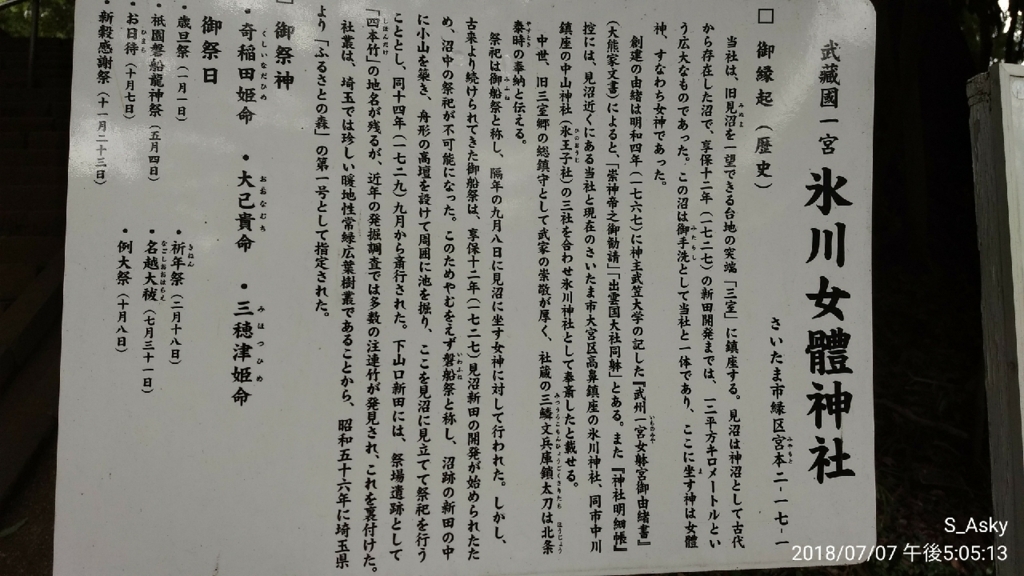 武藏國一宮 氷川女體神社
さいたま市緑区宮本二-一七-一
□ 御縁起 (歴史)
当社は、旧見沼を一望できる台地の突端「三室」に鎮座する。見沼は神沼として古代
から存在した沼で、享保十二年(一七二七)の新田開発までは、一二平方キロメートルとい
う広大なものであった。この沼は御手洗として当社と一体であり、ここに坐す神は女體
神、すなわち女神であった。
創建の由緒は明和四年(一七六七)に神主武笠大学の記した『武州一宮女躰宮御由緒書』
(大熊家文書)によると、「崇神帝之御勧請」「出雲国大社同躰」とある。また『神社明細帳』
控には、見沼近くにある当社と現在のさいたま市大宮区高鼻鎮座の氷川神社、同市中川
鎮座の中山神社(氷王子社)の三社を合わせ氷川神社として奉斎したと載せる。
中世、旧三室郷の総鎮守として武家の崇敬が厚く、社蔵の三鱗文兵庫鎖太刀は北条
泰時の奉納と伝える。
祭祀は御船祭と称し、隔年の九月八日に見沼に坐す女神に対して行われた。しかし、
古来より続けられてきた御船祭は、享保十二年(一七二七)見沼新田の開発が始められたた
め、沼中の祭祀が不可能になった。このためやむをえず磐船祭と称し、沼跡の新田の中
に小山を築き、舟形の高壇を設けて周囲に池を掘り、ここを見沼に見立てて祭祀を行う
こととし、同十四年(一七二九)九月から斎行された。下山口新田には、祭場遺跡として
「四本竹」の地名が残るが、近年の発掘調査では多数の注連竹が発見され、これを裏付けた。
社叢は、埼玉では珍しい暖地性常緑広葉樹叢であることから、昭和五十六年に埼玉県
より「ふるさとの森」の第一号として指定された。
御祭神
・奇稲田姫命 ・大己貴命 ・三穂津姫命
御祭日
・歳旦祭(一月一日) ・祈年祭(二月十八日)
・祇園磐船龍神祭(五月四日) ・名越大祓(七月三十一日)
・お日待(十月七日) ・例大祭(十月八日)
・新穀感謝祭(十一月二十三日)
S_Asky
2018/07/07 午後5:05:13